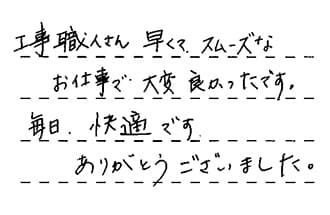 工事職人さん 早くて、スムーズな
お仕事で 大変 良かったです。
毎日、快適です
ありがとうございました。